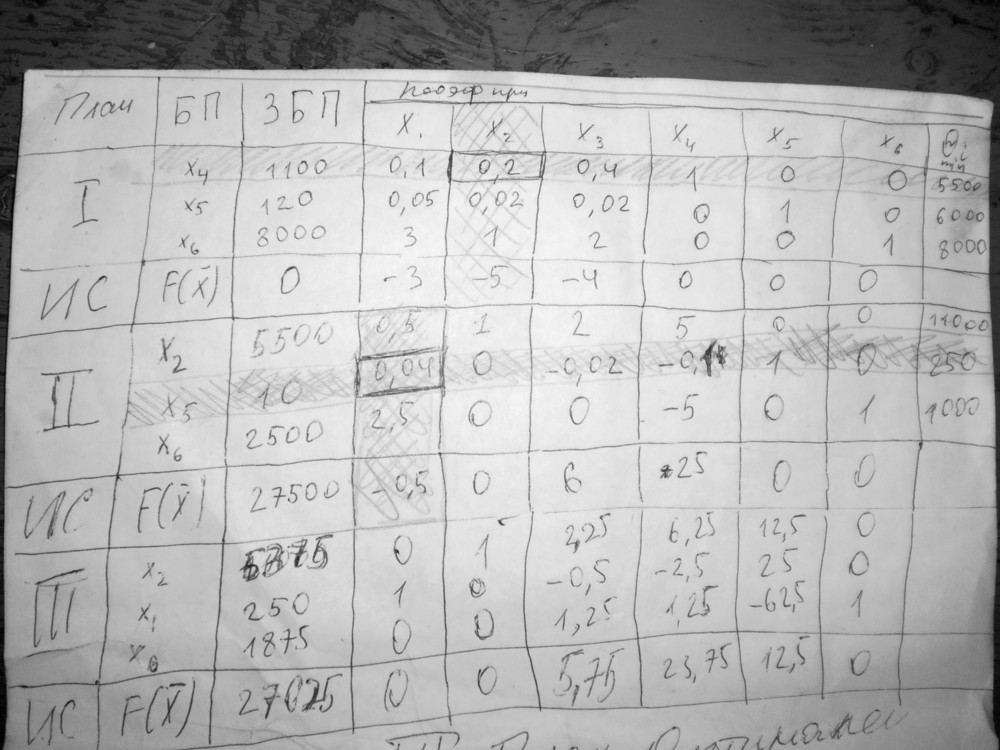 План БП ЗБП Коэф при
X₁ X₂ X₃ X₄ X₅ X₆ Θᵢ min
I x₄ 1100 0,1 0,2 0,4 1 0 0 5500
x₅ 120 0,05 0,02 0,02 0 1 0 6000
x₆ 8000 3 1 2 0 0 1 8000
ИС F(X̄) 0 -3 -5 -4 0 0 0
II x₂ 5500 0,5 1 2 5 0 0 11000
x₅ 10 0,04 0 -0,02 -0,1 1 0 250
x₆ 2500 2,5 0 0 -5 0 1 1000
ИС F(X̄) 27500 -0,5 0 6 25 0 0
III x₂ 5375 0 1 2,25 6,25 12,5 0
x₁ 250 1 0 -0,5 -2,5 25 0
x₆ 1875 0 0 1,25 1,25 -62,5 1
ИС F(X̄) 27625 0 0 5,75 23,75 12,5 0
III План Оптимален